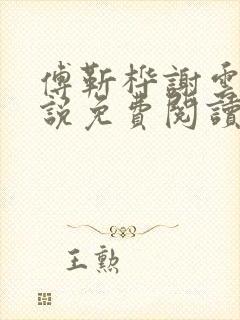 傅靳桦謝雲
說免費閱讀
王勲